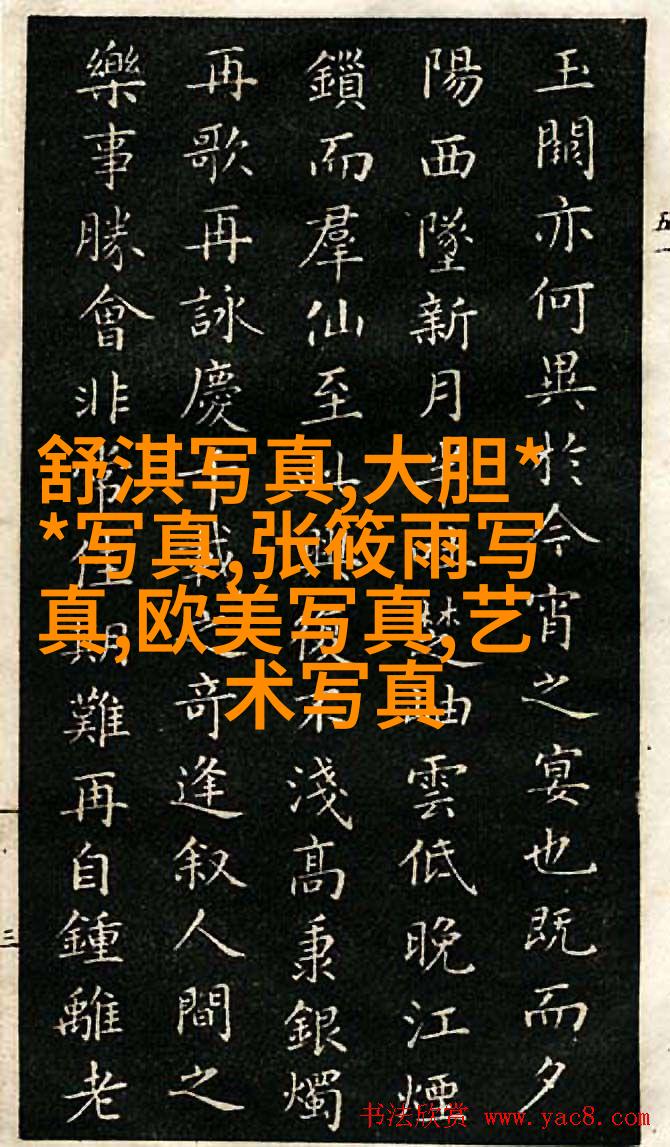 玉闕亦何異於今宵之宴也既而夕
陽西墜新月半楚岫雲低晚江煙
鎖而羣仙至興復不淺高秉銀燭
再歌再詠慶千載之奇逢叙人間之
樂事勝會非常佳期難再自鍾離老
舒淇写真,大胆*
*写真,张筱雨写
真,欧美写真,艺
术写真
五
三
书法欣赏 www.yac8.com